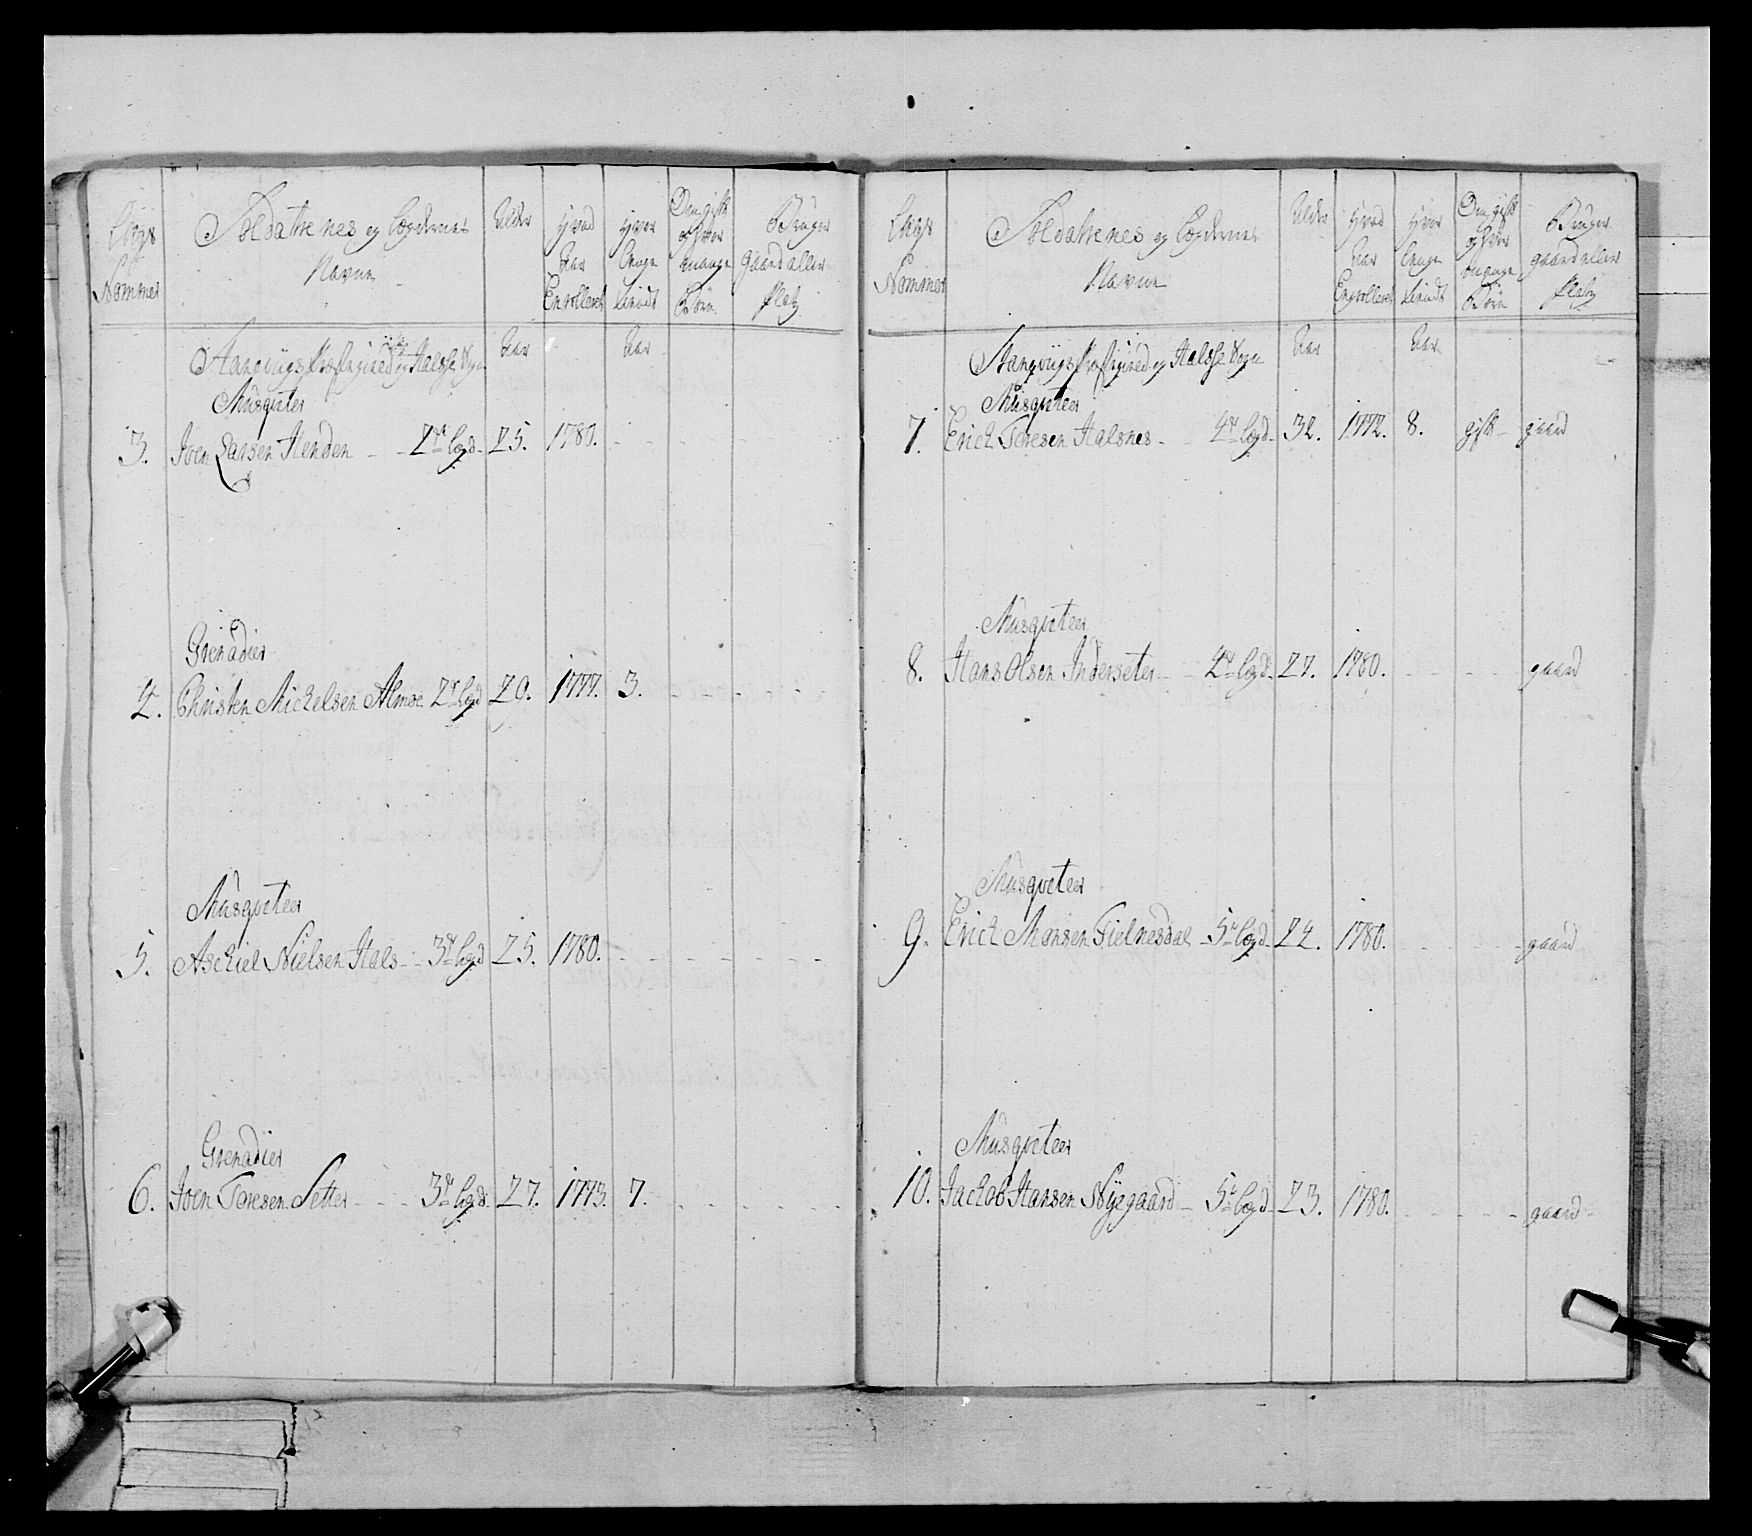 Lægs Nommer | Soldatternes og Lægdernes Navne | Alder | Hvad Aar Enrolleret | Hvor længe tiendt | Om gift og hvor mange Børn | Bruger gaard eller Platz
Stangvigs Præstegield og Halsse Sogn | Aar | | Aar
Musqveter
3. Joen Larsen Henden - - 2de Lægd - 25. 1780.
Grenadier
4. Christen Mickelsen Almoe 2de Lægd 29. 1777. 3.
Musqveteer
5. Aschiel Nielsen Hals - 3de Lægd 25. 1780.
Grenadier
6. Joen Toresen Setter - - - 3de Lægd 27. 1773. 7.
Lægs Nommer | Soldatternes og Lægdernes Navne | Alder | Hvad Aar Enrolleret | Hvor længe tiendt | Om gift og hvor mange Børn | Bruger gaard eller Platz
Stangvigs Præstegield og Halsse Sogn | Aar | | Aar
Musqveteer
7. Erich Toresen Halsnes - - 4de Lægd - 32. 1772. 8. gift - gaard
Musqveteer
8. Hans Olsen Inderseter - - 4de Lægd - 27. 1780. gaard
Musqveteer
9. Erich Monsen Fielnesdal - 5te Lægd - 24. 1780. - gaard
Musqveteer
10. Jachob Hansen Nyegaard - 5te Lægd - 23. 1780. - gaard -